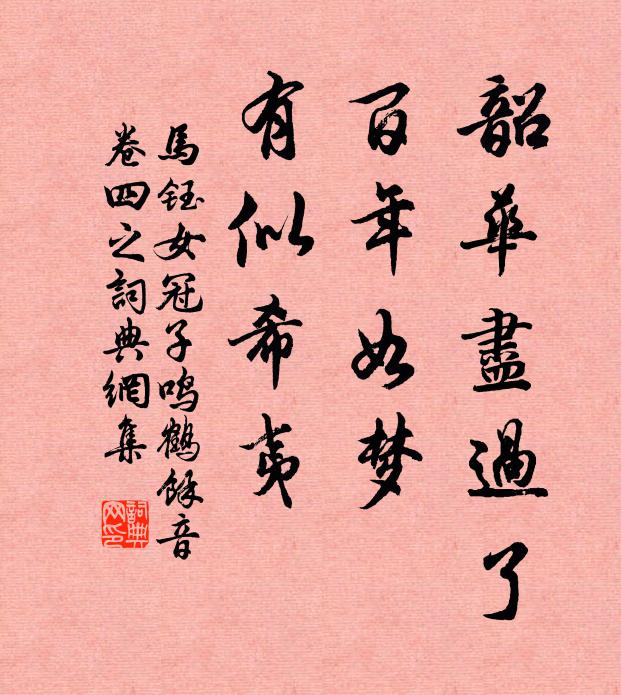 韶華盡過了
百年如梦
有似希夷
馬鈺女冠子鳴鶴餘音
卷四之詞典網集
詞典网印